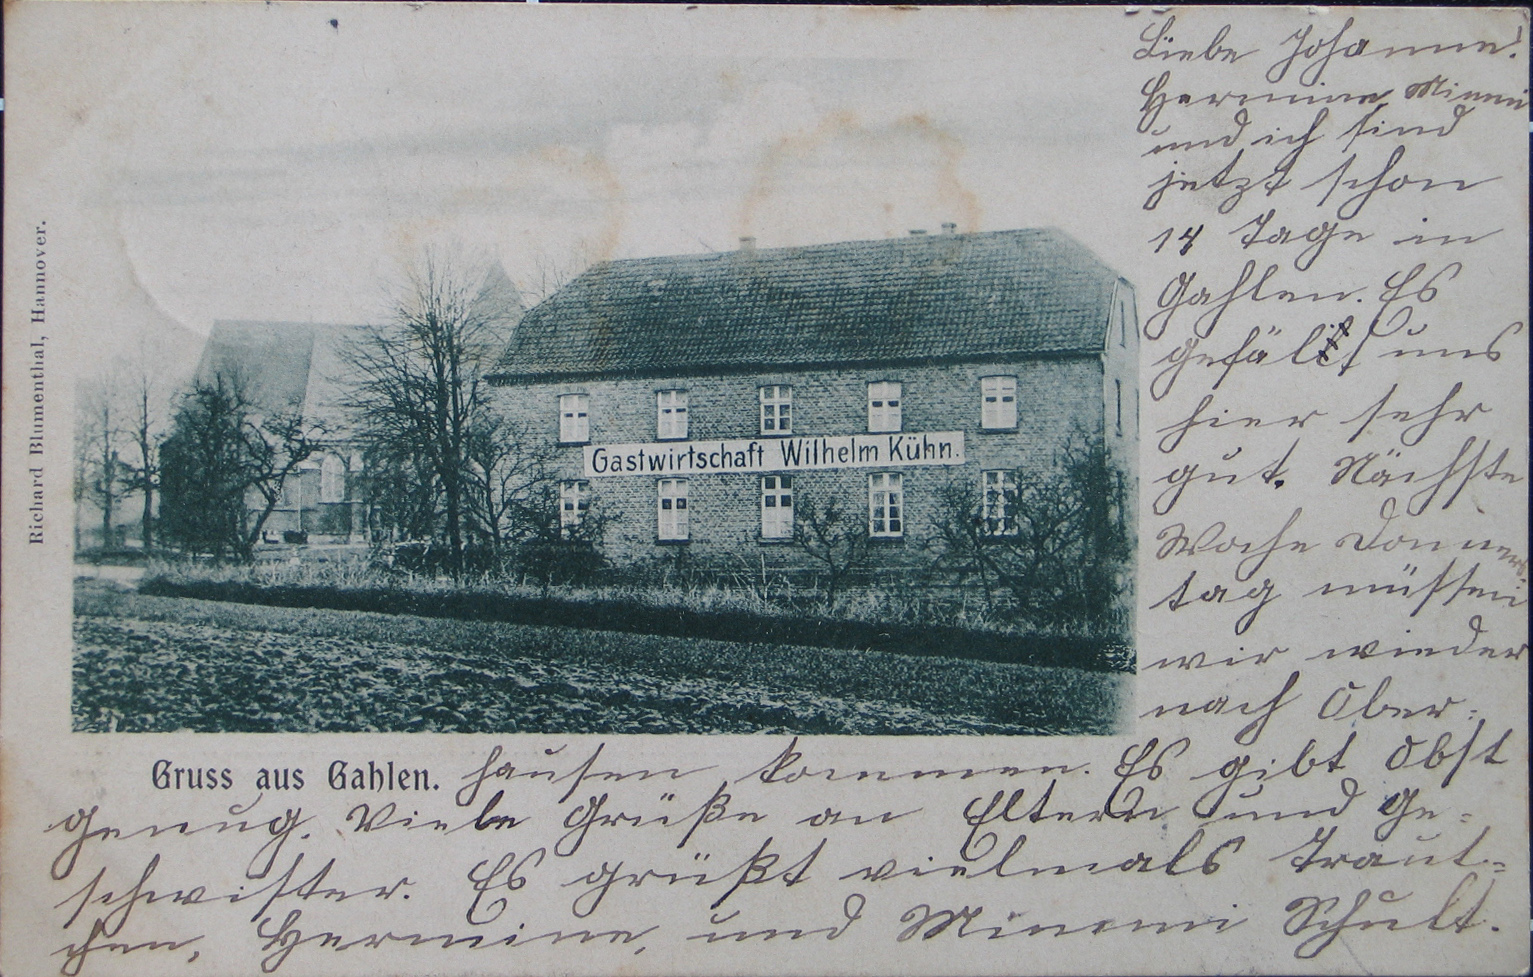 Liebe Johanne!
Hermine Minni
und ich sind
jetzt schon
14 Tage in
Gahlen. Es
gefällt uns
hier sehr
gut. Nächste
Woche Donners
tag müssen
wir wieder
nach Ober-
hausen kommen. Es gibt Obst
genug. Viele Grüße an Eltern und Ge-
schwister. Es grüßt vielmals Traut-
chen, Hermine, und Minni Schult.
Gastwirtschaft Wilhelm Kühn.
Gruss aus Gahlen.
Richard Blumenthal, Hannover.